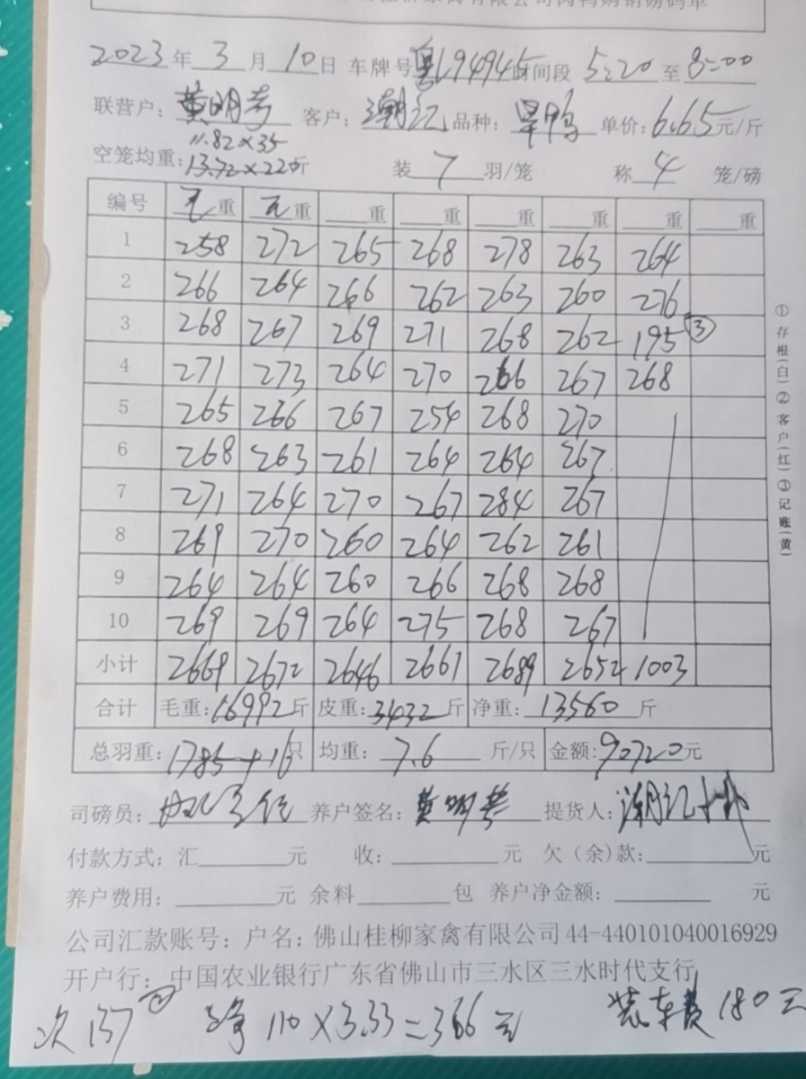 2023年3月10日 车牌号粤L94945 时间段 5:20 至 8:00
联营户:黄明 客户:潮江 品种:旱鸭 单价:6.65元/斤
11.82×35
空笼均重:13.72×220斤 装7羽/笼 称4笼/磅
编号 毛重 毛重 重 重 重 重 重 重
1 258 272 265 268 278 263 264
2 266 264 266 262 263 260 276
3 268 267 269 271 268 262 195 ③
4 271 273 264 270 266 267 268
5 265 266 267 254 268 270
6 268 263 261 264 264 267
7 271 264 270 267 284 267
8 269 270 260 264 262 261
9 264 264 260 266 268 268
10 269 269 264 275 268 267
小计 2669 2672 2646 2661 2689 2652 1003
合计 毛重:16992斤 皮重:3432斤 净重:13560斤
总羽重:1785+16只 均重:7.6斤/只 金额:90720元
司磅员: 养户签名:黄明 提货人:潮江
付款方式:汇 元 收: 元 欠(余)款: 元
养户费用: 元 余料 包 养户净金额: 元
公司汇款账号:户名:佛山桂柳家禽有限公司 44-440101040016929
开户行:中国农业银行广东省佛山市三水区三水时代支行
次137 净110×3.33=366元 装车费180元
①存根(白)②客户(红)③记账(黄)